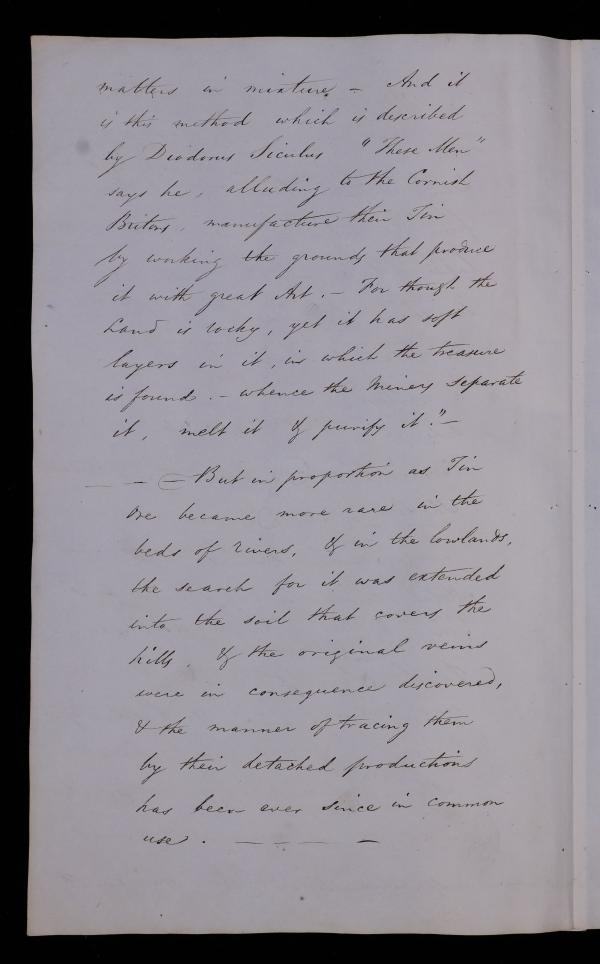 matters in mixture - And it
is this method which is described
by Diodorus Siculus "These Men"
says he, alluding to the Cornish
Britons, manufacture their Tin
by working the grounds that produce
it with great Art. - For though the
Land is rocky, yet it has soft
layers in it, in which the treasure
is found. - whence the Miners separate
it, melt it & purify it." -
- - But in proportion as Tin
Ore became more rare in the
beds of rivers, & in the lowlands,
the search for it was extended
into the soil that covers the
hills, & the original veins
were in consequence discovered,
& the manner of tracing them
by their detached productions
has been ever since in common
use. - - - -